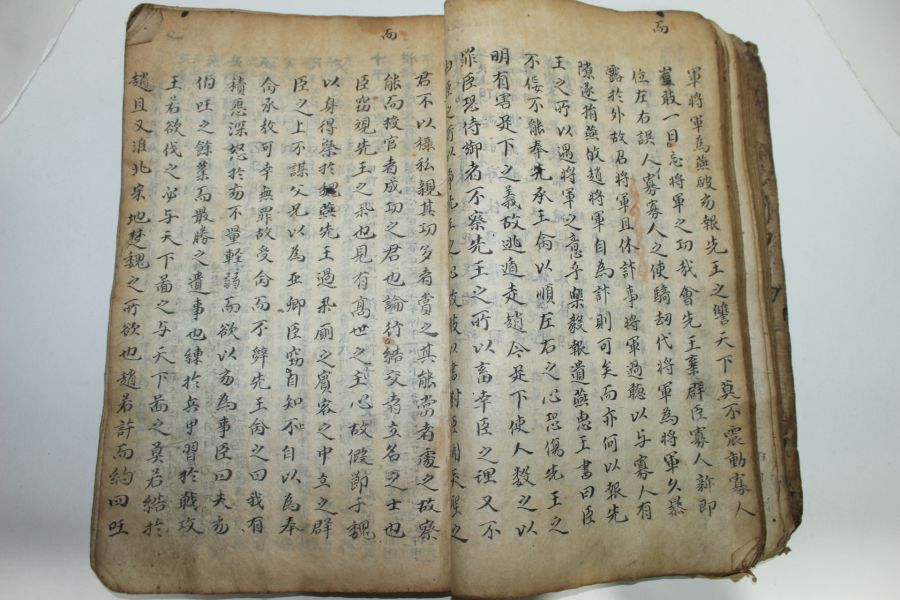 而
軍將軍為燕破齐報先王之讐天下莫不震動寡人
豈敢一日忘將軍之功哉會先王棄群臣寡人新即
位左右誤人寡寡人之使騎劫代將軍為將軍久暴
露於外故召將軍且休計事將軍過聽以与寡人有
隙遂捐燕故趙將軍自為計則可矣而亦何以報先
王之所以遇將軍之意乎樂毅報遺燕惠王書曰臣
不佞不能奉先承王命以順左右之心恐傷先王之
明有害足下之義故逃遁走趙今足下使人数之以
罪臣恐侍御者不察先王之所以畜幸臣之理又不
臣之所以先之心故敢以書對臣聞夫聖之
而
君不以祿私親其功多者賞之其能當者處之故察
能而授官者成功之君也論行結交者立名之士也
臣窃視先王之举也見有高世之主心故假節于魏
以身得察於魏燕先王過举厠之賓客之中立之群
臣之上不謀父兄以為亚卿臣窃自知不自以為奉
命承教可幸無罪故受命而不辝先王命之曰我有
積怨深怒於齐不量軽弱而欲以齐為事臣曰夫齐
伯囯之餘業而最勝之遺事也練於兵甲習於戦攻
王若欲伐之必与天下啚之与天下啚之莫若結於
趙且又淮北宋地楚魏之所欲也趙若許而約四囯